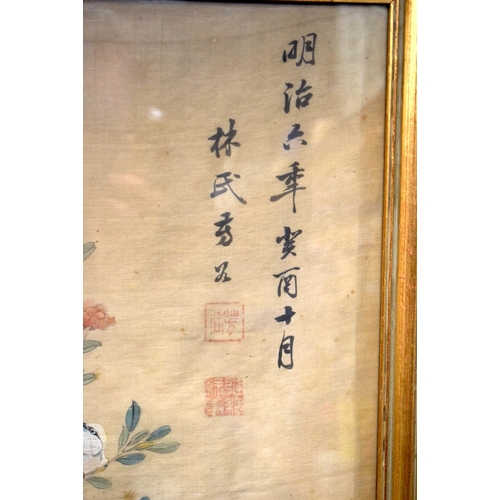 明治六年癸酉十月
林氏芳谷